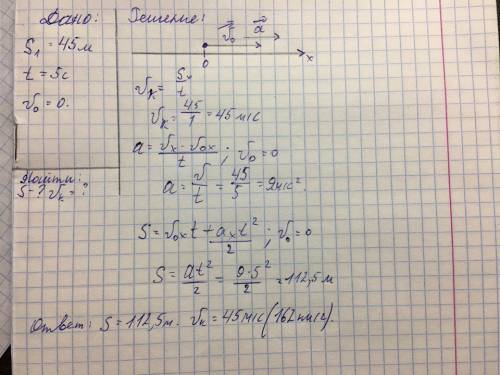 Дано:
S₁ = 45 м
t = 5 с
v₀ = 0.
Найти:
S - ? vₖ = ?
Решение:
v₀ a
0 x
vₖ = Sₓ/t
vₖ = 45/1 = 45 м/с
a = (vₓ - v₀ₓ)/t ; v₀ = 0
a = v/t = 45/5 = 9 м/с².
S = v₀ₓt + aₓt²/2 ; v₀ = 0
S = at²/2 = 9·5²/2 = 112,5 м
Ответ: S = 112,5 м. vₖ = 45 м/с (162 км/с).